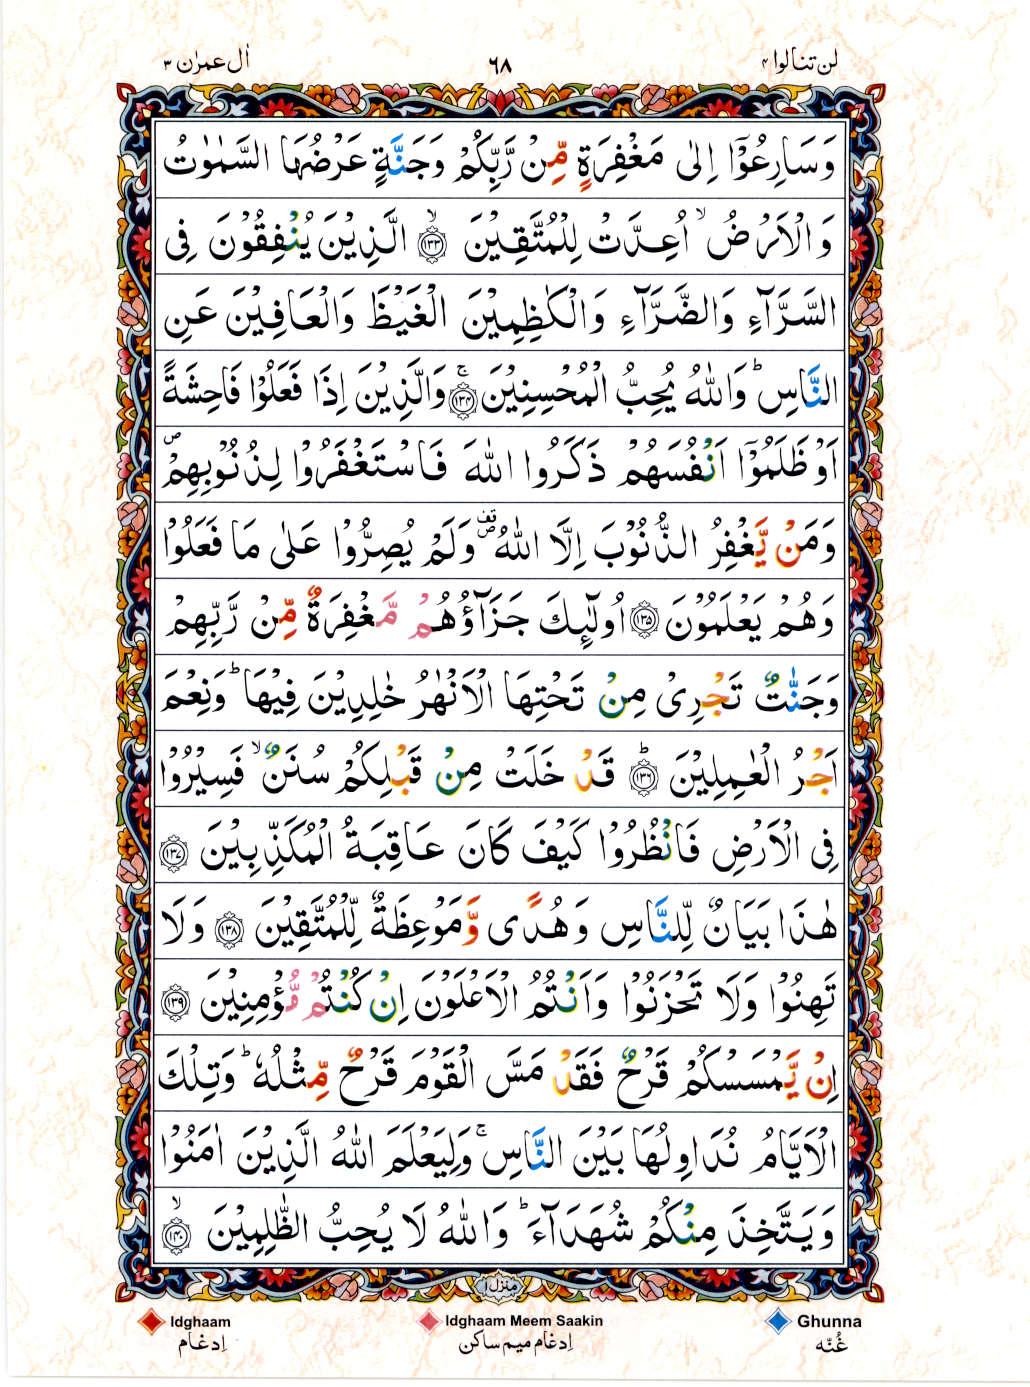 لن تنالوا ۴
٦٨
اٰل عمرٰن ٣
وَسَارِعُوْۤا اِلٰى مَغْفِرَةٍ مِّنْ رَّبِّكُمْ وَجَنَّةٍ عَرْضُهَا السَّمٰوٰتُ
وَالْاَرْضُ ۙ اُعِدَّتْ لِلْمُتَّقِيْنَ ۙ﴿۱۳۳﴾ الَّذِيْنَ يُنْفِقُوْنَ فِى
السَّرَّآءِ وَالضَّرَّآءِ وَالْكٰظِمِيْنَ الْغَيْظَ وَالْعَافِيْنَ عَنِ
النَّاسِ ؕ وَاللّٰهُ يُحِبُّ الْمُحْسِنِيْنَ ۚ﴿۱۳۴﴾ وَالَّذِيْنَ اِذَا فَعَلُوْا فَاحِشَةً
اَوْ ظَلَمُوْۤا اَنْفُسَهُمْ ذَكَرُوا اللّٰهَ فَاسْتَغْفَرُوْا لِذُنُوْبِهِمْ ۪
وَمَنْ يَّغْفِرُ الذُّنُوْبَ اِلَّا اللّٰهُ ۪۫ وَلَمْ يُصِرُّوْا عَلٰى مَا فَعَلُوْا
وَهُمْ يَعْلَمُوْنَ ﴿۱۳۵﴾ اُولٰٓئِكَ جَزَآؤُهُمْ مَّغْفِرَةٌ مِّنْ رَّبِّهِمْ
وَجَنّٰتٌ تَجْرِىْ مِنْ تَحْتِهَا الْاَنْهٰرُ خٰلِدِيْنَ فِيْهَا ؕ وَنِعْمَ
اَجْرُ الْعٰمِلِيْنَ ؕ﴿۱۳۶﴾ قَدْ خَلَتْ مِنْ قَبْلِكُمْ سُنَنٌ ۙ فَسِيْرُوْا
فِى الْاَرْضِ فَانْظُرُوْا كَيْفَ كَانَ عَاقِبَةُ الْمُكَذِّبِيْنَ ﴿۱۳۷﴾
هٰذَا بَيَانٌ لِّلنَّاسِ وَهُدًى وَّمَوْعِظَةٌ لِّلْمُتَّقِيْنَ ﴿۱۳۸﴾ وَلَا
تَهِنُوْا وَلَا تَحْزَنُوْا وَاَنْتُمُ الْاَعْلَوْنَ اِنْ كُنْتُمْ مُّؤْمِنِيْنَ ﴿۱۳۹﴾
اِنْ يَّمْسَسْكُمْ قَرْحٌ فَقَدْ مَسَّ الْقَوْمَ قَرْحٌ مِّثْلُهٗ ؕ وَتِلْكَ
الْاَيَّامُ نُدَاوِلُهَا بَيْنَ النَّاسِ ۚ وَلِيَعْلَمَ اللّٰهُ الَّذِيْنَ اٰمَنُوْا
وَيَتَّخِذَ مِنْكُمْ شُهَدَآءَ ؕ وَاللّٰهُ لَا يُحِبُّ الظّٰلِمِيْنَ ۙ﴿۱۴۰﴾
منزل ۱
Idghaam Idghaam Meem Saakin Ghunna
غُنّه اِدغام ميم ساكن اِدغام